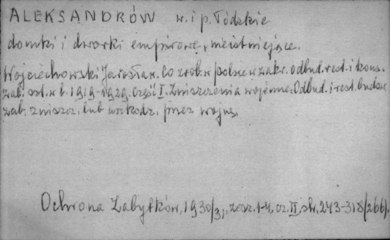 ALEKSANDRÓW w. i p. Łódzkie
domki i dworki empirowe, nieistniejące.
Wojciechowski Jarosław. Co zrob. w Polsce w zakr. odbud. rest. i kons.
zab. szt. w l. 1919-1929. Część I. Zniszczenia wojenne. Odbud. i rest. budow.
zab. zniszcz. lub uszkodz. przez wojnę.
Ochrona Zabytków, 1930/31, zesz. 1-4, cz. II, str. 243-318/266/.